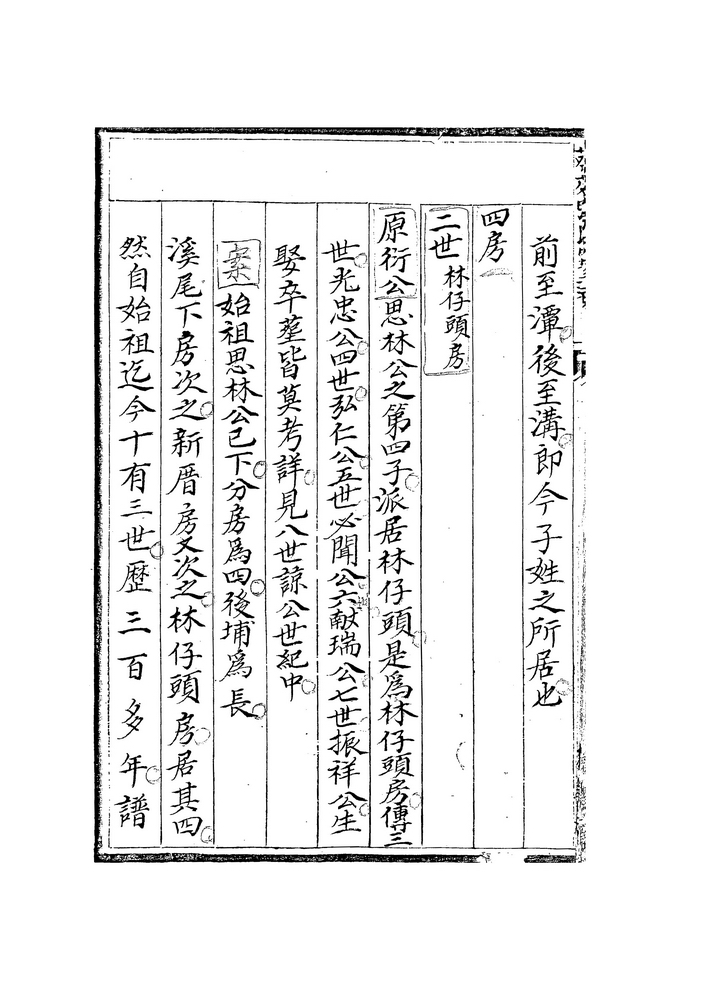 前至潭後至溝即今子姓之所居也
四房
二世 林仔頭房
原衍公思林公之第四子派居林仔頭是為林仔頭房傳三
世光忠公四世弘仁公五世必聞公六献瑞公七世振祥公生
娶卒塟皆莫考詳見八世諒公世紀中
案 始祖思林公已下分房爲四後埔爲長
溪尾下房次之新厝房又次之林仔頭房居其四
然自始祖迄今十有三世歷三百多年譜